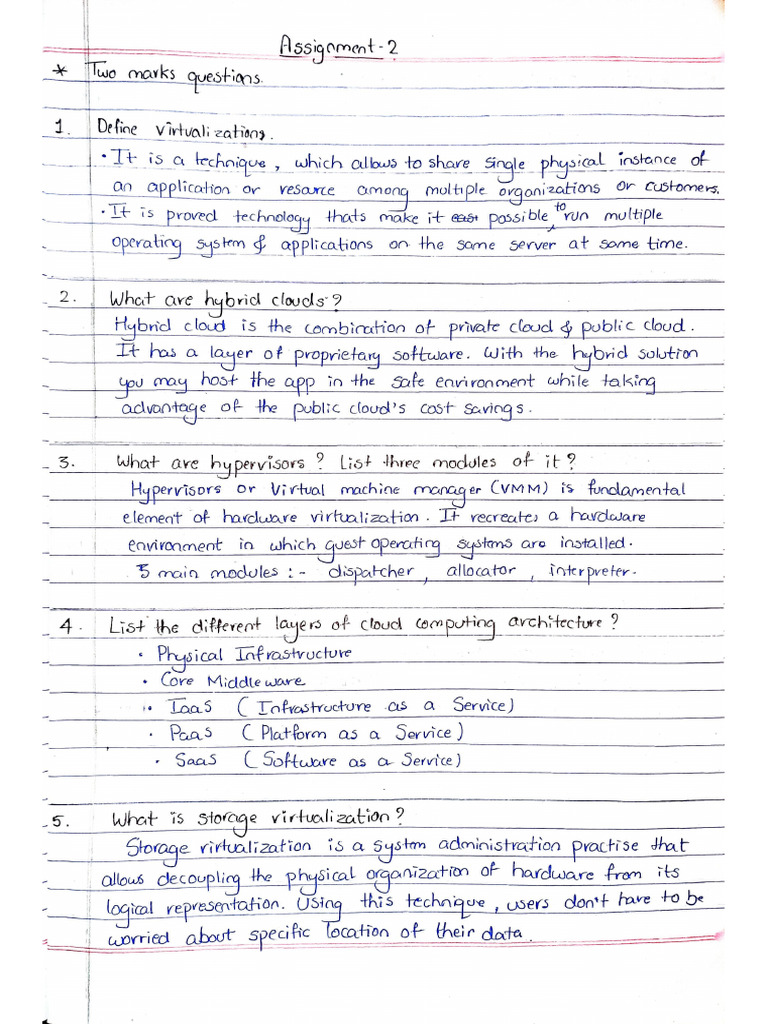 Assignment-2
* Two marks questions.
1. Define virtualizations.
• It is a technique, which allows to share single physical instance of
an application or resource among multiple organizations or customers.
• It is proved technology thats make it possible to run multiple
operating system & applications on the same server at same time.
2. What are hybrid clouds?
Hybrid cloud is the combination of private cloud & public cloud.
It has a layer of proprietary software. With the hybrid solution
you may host the app in the safe environment while taking
advantage of the public cloud's cost savings.
3. What are hypervisors? List three modules of it?
Hypervisors or Virtual machine manager (VMM) is fundamental
element of hardware virtualization. It recreates a hardware
environment in which guest operating systems are installed.
3 main modules :- dispatcher, allocator, interpreter.
4. List the different layers of cloud computing architecture?
• Physical Infrastructure
• Core Middleware
• IaaS (Infrastructure as a Service)
• PaaS (Platform as a Service)
• SaaS (Software as a Service)
5. What is storage virtualization?
Storage virtualization is a system administration practise that
allows decoupling the physical organization of hardware from its
logical representation. Using this technique, users don't have to be
worried about specific location of their data.